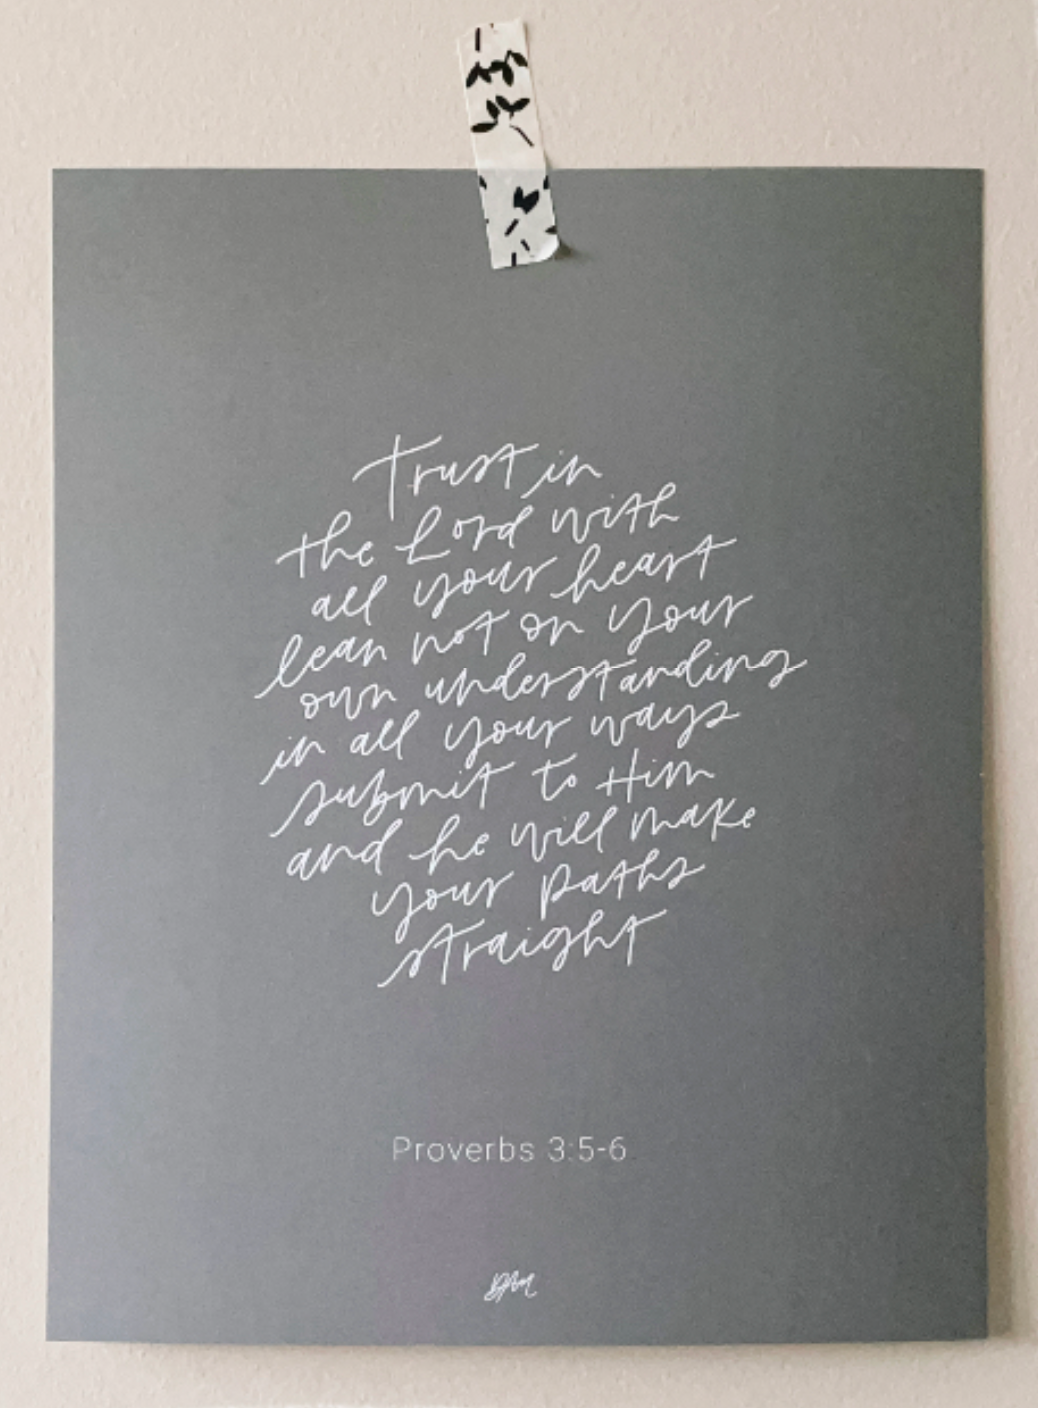 Trust in
the Lord with
all your heart
lean not on your
own understanding
in all your ways
submit to Him
and he will make
your paths
straight
Proverbs 3:5-6